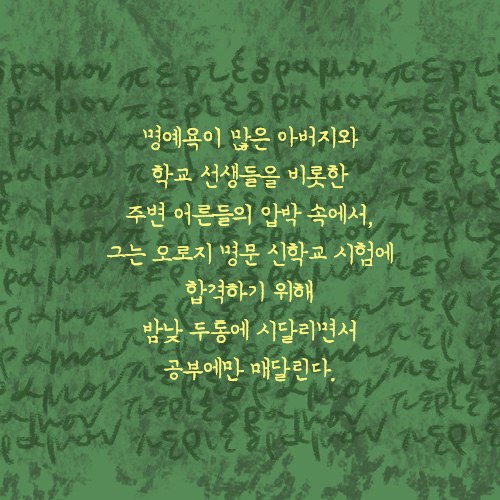 περιέδραμον περιέδραμον περ
명예욕이 많은 아버지와
학교 선생들을 비롯한
주변 어른들의 압박 속에서,
그는 오로지 명문 신학교 시험에
합격하기 위해
밤낮 두통에 시달리면서
공부에만 매달린다.